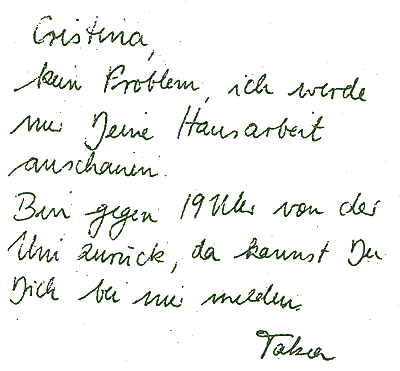 Cristina,
kein Problem, ich werde
mir Deine Hausarbeit
anschauen.
Bin gegen 19 Uhr von der
Uni zurück, da kannst Du
Dich bei mir melden.